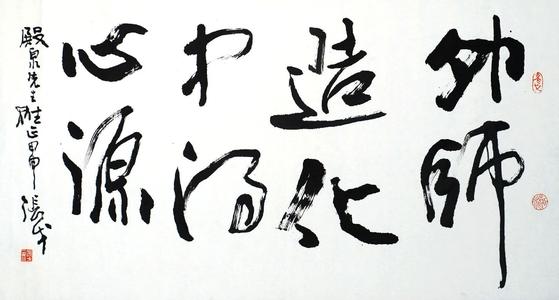 外師
造化
中得
心源
殿泉先生雅正甲申張